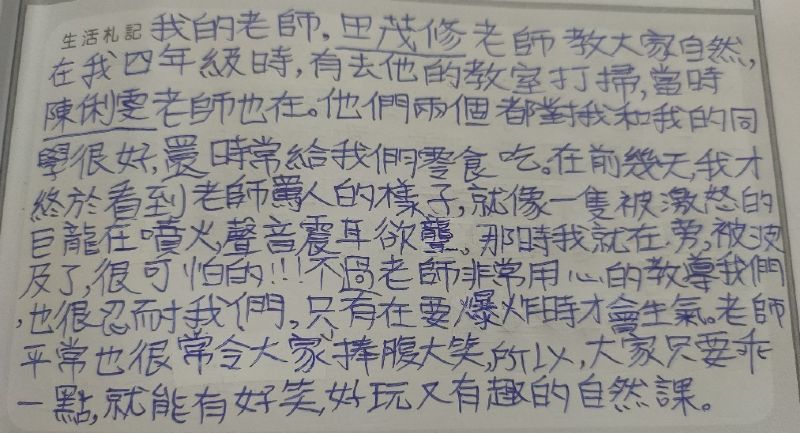 生活札記 我的老師,田茂修老師教大家自然,
在我四年級時,有去他的教室打掃,當時
陳俐雯老師也在。他們兩個都對我和我的同
學很好,還時常給我們零食吃。在前幾天,我才
終於看到老師罵人的樣子,就像一隻被激怒的
巨龍在噴火,聲音震耳欲聾。那時我就在旁,被波
及了,很可怕的!!!不過老師非常用心的教導我們
,也很忍耐我們,只有在要爆炸時才會生氣。老師
平常也很常令大家捧腹大笑,所以,大家只要乖
一點,就能有好笑,好玩又有趣的自然課。